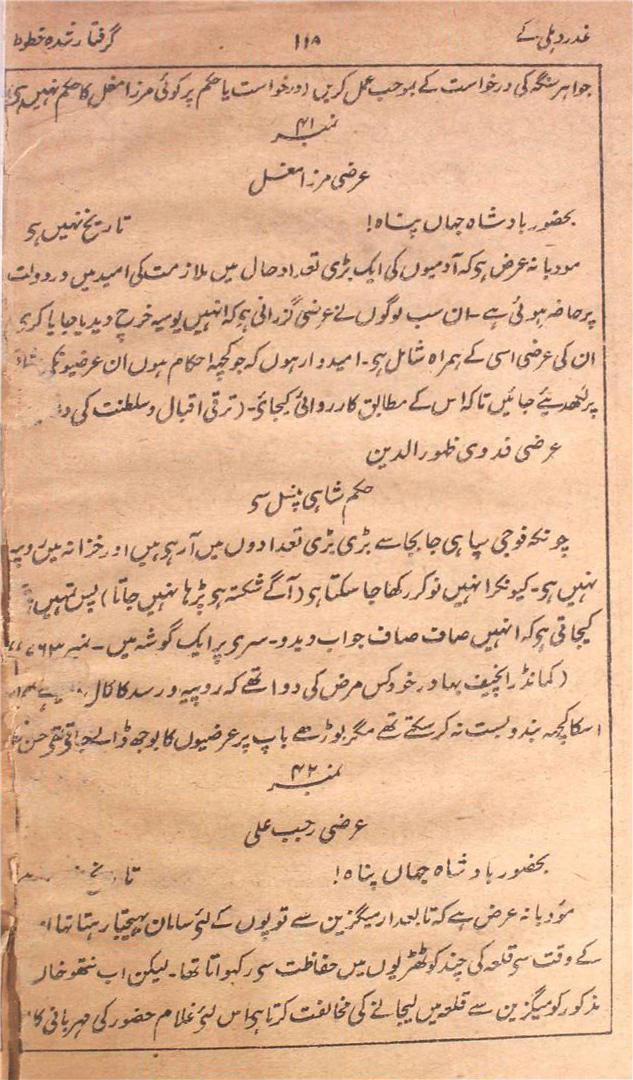 غدر دہلی کے ۱۱۸ گرفتار شدہ خطوط
جواہر سنگہ کی درخواست کے بموجب عمل کریں (درخواست یا حکم پر کوئی مرزا مغل کا حکم نہیں ہی)
نمبر ۴۱
عرضی مرزا مغل
بحضور بادشاہ جہاں پناہ! تاریخ نہیں ہی
مودبانہ عرض ہی کہ آدمیوں کی ایک بڑی تعداد حال میں ملازمت کی امید میں در دولت
پر حاضر ہوئی ہے۔ ان سب لوگوں نے عرضی گزرانی ہی کہ انہیں یومیہ خرچ دیدیا جایا کری
ان کی عرضی اسی کے ہمراہ شامل ہی۔ امیدوار ہوں کہ جو کچہہ احکام ہوں ان عرضیوں کی
پر لکھدیئے جائیں تاکہ اس کے مطابق کارروائی کیجائی۔ (ترقی اقبال و سلطنت کی
عرضی فدوی ظہور الدین
حکم شاہی پنسل سی
چونکہ فوجی سپاہی جا بجا سے بڑی بڑی تعدادوں میں آ رہی ہیں اور خزانہ میں روپیہ
نہیں ہی۔ کیونکر انہیں نوکر رکھا جا سکتا ہی (آگے شکستہ ہی پڑہا نہیں جاتا) پس تمہیں
کیجاتی ہی کہ انہیں صاف صاف جواب دیدو۔ سری پر ایک گوشہ میں۔ نمبر ۵۶۳
(کمانڈر انچیف بہادر خود کس مرض کی دوا تھے کہ روپیہ و رسد کا کال
اسکا کچہہ بندوبست نہ کر سکتے تھے مگر بوڑھے باپ پر عرضیوں کا بوجھ ڈالے جاتی تھی حسن
نمبر ۴۲
عرضی رجب علی
بحضور بادشاہ جہاں پناہ!
مؤدبانہ عرض ہے کہ تابعدار میگزین سے توپوں کے لئے سامان بہیجتا رہتا تہا
کے وقت سی قلعہ کی چند کوٹھڑیوں میں حفاظت سی رکہواتا تھا۔ لیکن اب نتھو خاں
مذکور کو میگزین سے قلعہ میں لیجانے کی مخالفت کرتا ہی اس لئے غلام حضور کی مہربانی کا